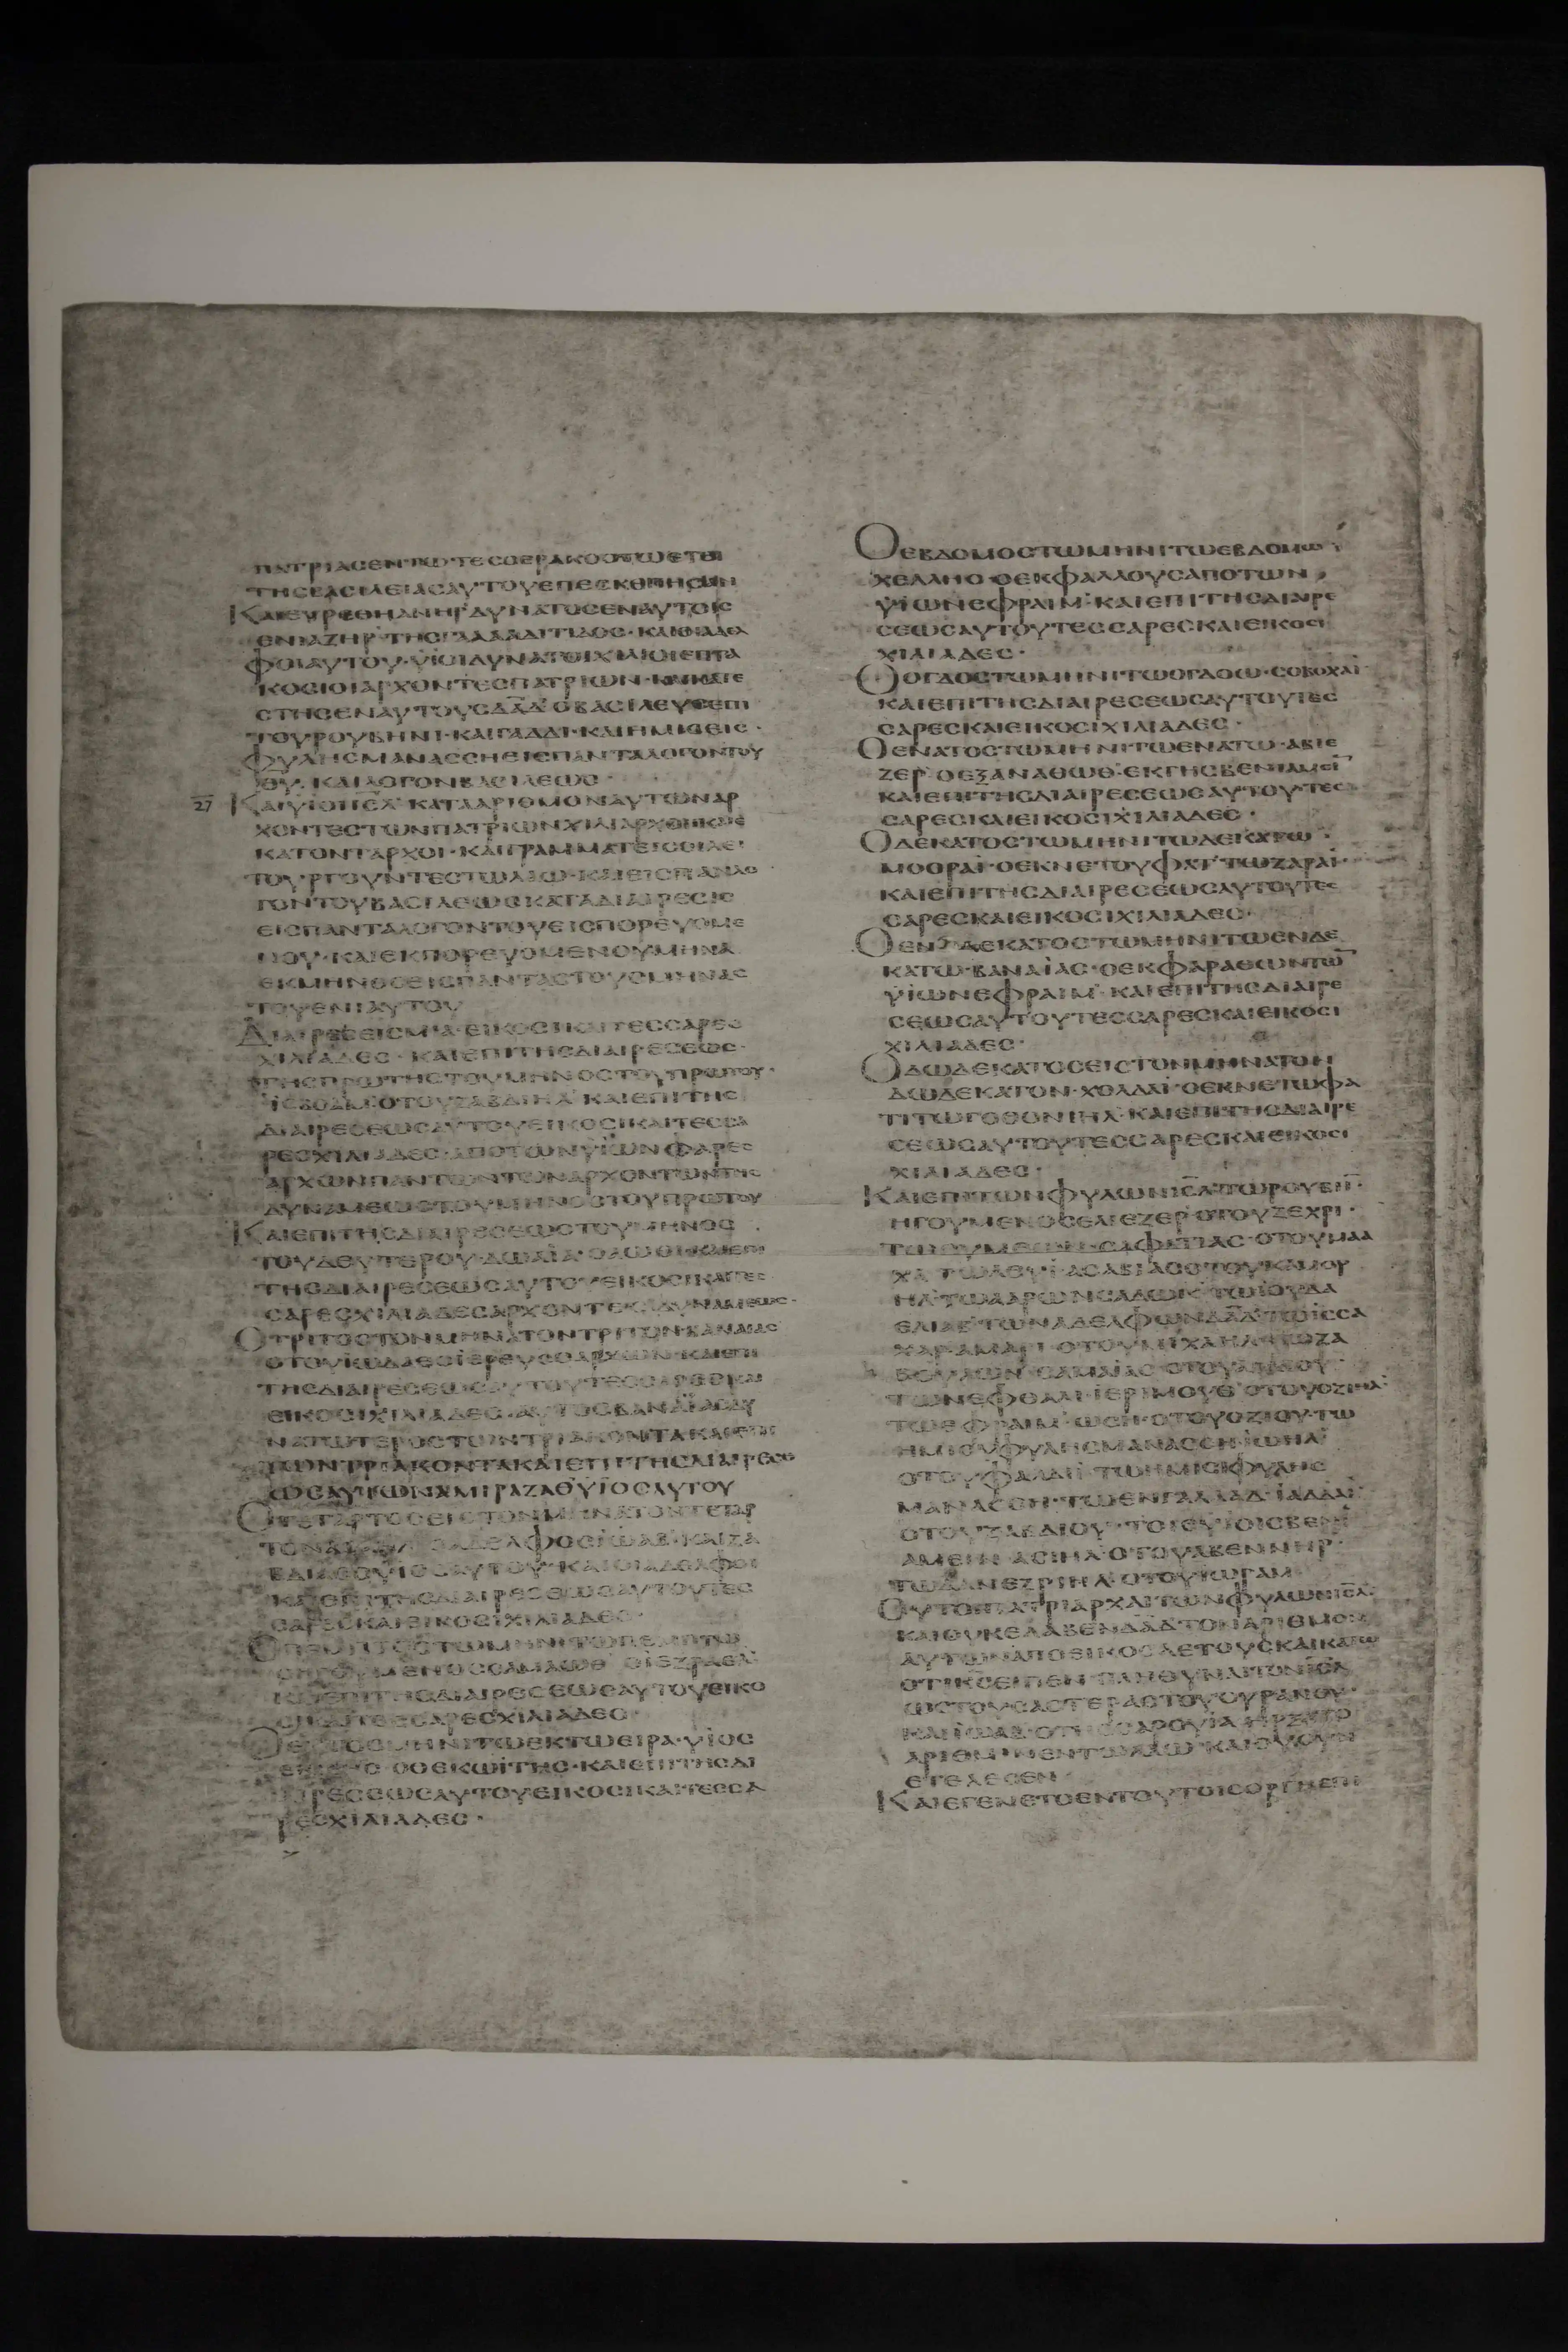 ΠΑΤΡΙΑϹΕΝΤΩ·ΤΕϹϹΕΡΑΚΟϹΤΩΕΤΕΙ
ΤΗϹΒΑϹΙΛΕΙΑϹΑΥΤΟΥΕΠΕϹΚΕΠΗϹΑΝ
ΚΑΙΕΥΡΕΘΗΑΝΗΡ·ΔΥΝΑΤΟϹΕΝΑΥΤΟΙϹ
ΕΝΙΑΖΗΡ·ΤΗϹΓΑΛΑΑΔΙΤΙΔΟϹ·ΚΑΙΟΙΑΔΕΛ
ΦΟΙΑΥΤΟΥ·ΥΙΟΙΔΥΝΑΤΟΙΧΙΛΙΟΙΕΠΤΑ
ΚΟϹΙΟΙΑΡΧΟΝΤΕϹΠΑΤΡΙΩΝ·ΚΑΙΚΑΤΕ
ϹΤΗϹΕΝΑΥΤΟΥϹΔΑΔ·ΟΒΑϹΙΛΕΥϹΕΠΙ
ΤΟΥΡΟΥΒΗΝΙ·ΚΑΙΓΑΔΔΙ·ΚΑΙΗΜΙϹΕΙϹ·
ΦΥΛΗϹΜΑΝΑϹϹΗΕΙϹΠΑΝΤΑΛΟΓΟΝΤΟΥ
ΘΥ·ΚΑΙΛΟΓΟΝΒΑϹΙΛΕΩϹ·
27 ΚΑΙΥΙΟΙΙΗΛ·ΚΑΤΑΑΡΙΘΜΟΝΑΥΤΩΝΑΡ
ΧΟΝΤΕϹΤΩΝΠΑΤΡΙΩΝΧΙΛΙΑΡΧΟΙΚΑΙΕ
ΚΑΤΟΝΤΑΡΧΟΙ·ΚΑΙΓΡΑΜΜΑΤΕΙϹΟΙΛΕΙ
ΤΟΥΡΓΟΥΝΤΕϹΤΩΛΑΩ·ΚΑΙΕΙϹΠΑΝΛΟ
ΓΟΝΤΟΥΒΑϹΙΛΕΩϹΚΑΤΑΔΙΑΙΡΕϹΙϹ
ΕΙϹΠΑΝΤΑΛΟΓΟΝΤΟΥΕΙϹΠΟΡΕΥΟΜΕ
ΝΟΥ·ΚΑΙΕΚΠΟΡΕΥΟΜΕΝΟΥΜΗΝΑ
ΕΚΜΗΝΟϹΕΙϹΠΑΝΤΑϹΤΟΥϹΜΗΝΑϹ
ΤΟΥΕΝΙΑΥΤΟΥ
ΔΙΑΙΡΕϹΕΙϹΜΙΑ·ΕΙΚΟϹΙΚΑΙΤΕϹϹΑΡΕϹ
ΧΙΛΙΑΔΕϹ·ΚΑΙΕΠΙΤΗϹΔΙΑΙΡΕϹΕΩϹ·
ΤΗϹΠΡΩΤΗϹΤΟΥΜΗΝΟϹΤΟΥΠΡΩΤΟΥ·
ΙϹΒΟΑΜ·ΟΤΟΥΖΑΒΔΙΗΛ·ΚΑΙΕΠΙΤΗϹ
ΔΙΑΙΡΕϹΕΩϹΑΥΤΟΥΕΙΚΟϹΙΚΑΙΤΕϹϹΑ
ΡΕϹΧΙΛΙΑΔΕϹ·ΑΠΟΤΩΝΥΙΩΝΦΑΡΕϹ
ΑΡΧΩΝΠΑΝΤΩΝΤΩΝΑΡΧΟΝΤΩΝΤΗϹ
ΔΥΝΑΜΕΩϹΤΟΥΜΗΝΟϹΤΟΥΠΡΩΤΟΥ
ΚΑΙΕΠΙΤΗϹΔΙΑΙΡΕϹΕΩϹΤΟΥΜΗΝΟϹ
ΤΟΥΔΕΥΤΕΡΟΥ·ΔΩΑΙΑ·ΟΑΩΘΙ·ΚΑΙΕΠΙ
ΤΗϹΔΙΑΙΡΕϹΕΩϹΑΥΤΟΥΕΙΚΟϹΙΚΑΙΤΕϹ
ϹΑΡΕϹΧΙΛΙΑΔΕϹΑΡΧΟΝΤΕϹΔΥΝΑΜΕΩϹ·
ΟΤΡΙΤΟϹΤΟΝΜΗΝΑΤΟΝΤΡΙΤΟΝ·ΒΑΝΑΙΑϹ
ΟΤΟΥΙΩΔΑΕΟΙΕΡΕΥϹΟΑΡΧΩΝ·ΚΑΙΕΠΙ
ΤΗϹΔΙΑΙΡΕϹΕΩϹΑΥΤΟΥΤΕϹϹΑΡΕϹΚΑΙ
ΕΙΚΟϹΙΧΙΛΙΑΔΕϹ·ΑΥΤΟϹΒΑΝΑΙΑϹΔΥ
ΝΑΤΩΤΕΡΟϹΤΩΝΤΡΙΑΚΟΝΤΑΚΑΙΕΠΙ
ΤΩΝΤΡΙΑΚΟΝΤΑΚΑΙΕΠΙΤΗϹΔΙΑΙΡΕϹΕ
ΩϹΑΥΤΩΝΑΜΙΡΑΖΑΘΥΙΟϹΑΥΤΟΥ
ΟΤΕΤΑΡΤΟϹΕΙϹΤΟΝΜΗΝΑΤΟΝΤΕΤΑΡ
ΤΟΝΑϹΑΗΛ·ΟΑΔΕΛΦΟϹΙΩΑΒ·ΚΑΙΖΑ
ΒΔΙΑϹΟΥΙΟϹΑΥΤΟΥ·ΚΑΙΟΙΑΔΕΛΦΟΙ
ΚΑΙΕΠΙΤΗϹΔΙΑΙΡΕϹΕΩϹΑΥΤΟΥΤΕϹ
ϹΑΡΕϹΚΑΙΕΙΚΟϹΙΧΙΛΙΑΔΕϹ·
ΟΠΕΜΠΤΟϹΤΩΜΗΝΙΤΩΠΕΜΠΤΩ
ΟΗΓΟΥΜΕΝΟϹϹΑΜΑΩΘ·ΟΙΕΖΡΑΕΛ
ΚΑΙΕΠΙΤΗϹΔΙΑΙΡΕϹΕΩϹΑΥΤΟΥΕΙΚΟ
ϹΙΚΑΙΤΕϹϹΑΡΕϹΧΙΛΙΑΔΕϹ·
ΟΕΚΤΟϹΜΗΝΙΤΩΕΚΤΩΕΙΡΑ·ΥΙΟϹ
ΟΘΕΚΩΙΤΗϹ·ΚΑΙΕΠΙΤΗϹΔΙ
ΑΙΡΕϹΕΩϹΑΥΤΟΥΕΙΚΟϹΙΚΑΙΤΕϹϹΑ
ΡΕϹΧΙΛΙΑΔΕϹ·
ΟΕΒΔΟΜΟϹΤΩΜΗΝΙΤΩΕΒΔΟΜΩ
ΧΕΛΛΗϹ·ΟΕΚΦΑΛΛΟΥϹΑΠΟΤΩΝ
ΥΙΩΝΕΦΡΑΙΜ·ΚΑΙΕΠΙΤΗϹΔΙΑΙΡΕ
ϹΕΩϹΑΥΤΟΥΤΕϹϹΑΡΕϹΚΑΙΕΙΚΟϹΙ
ΧΙΛΙΑΔΕϹ·
ΟΟΓΔΟΟϹΤΩΜΗΝΙΤΩΟΓΔΟΩ·ϹΟΒΟΧΑΙ
ΚΑΙΕΠΙΤΗϹΔΙΑΙΡΕϹΕΩϹΑΥΤΟΥΤΕϹ
ϹΑΡΕϹΚΑΙΕΙΚΟϹΙΧΙΛΙΑΔΕϹ·
ΟΕΝΑΤΟϹΤΩΜΗΝΙΤΩΕΝΑΤΩ·ΑΒΙΕ
ΖΕΡ·ΟΕΞΑΝΑΘΩΘ·ΕΚΓΗϹΒΕΝΙΑΜΕΙ
ΚΑΙΕΠΙΤΗϹΔΙΑΙΡΕϹΕΩϹΑΥΤΟΥ·ΤΕϹ
ϹΑΡΕϹΚΑΙΕΙΚΟϹΙΧΙΛΙΑΔΕϹ·
ΟΔΕΚΑΤΟϹΤΩΜΗΝΙΤΩΔΕΚΑΤΩ·
ΜΟΟΡΑΙ·ΟΕΚΝΕΤΟΥΦΑΤ·ΤΩΖΑΡΑΙ·
ΚΑΙΕΠΙΤΗϹΔΙΑΙΡΕϹΕΩϹΑΥΤΟΥΤΕϹ
ϹΑΡΕϹΚΑΙΕΙΚΟϹΙΧΙΛΙΑΔΕϹ·
ΟΕΝΔΕΚΑΤΟϹΤΩΜΗΝΙΤΩΕΝΔΕ
ΚΑΤΩ·ΒΑΝΑΙΑϹ·ΟΕΚΦΑΡΑΘΩΝΤΩ
ΥΙΩΝΕΦΡΑΙΜ·ΚΑΙΕΠΙΤΗϹΔΙΑΙΡΕ
ϹΕΩϹΑΥΤΟΥΤΕϹϹΑΡΕϹΚΑΙΕΙΚΟϹΙ
ΧΙΛΙΑΔΕϹ·
ΟΔΩΔΕΚΑΤΟϹΕΙϹΤΟΝΜΗΝΑΤΟΝ
ΔΩΔΕΚΑΤΟΝ·ΧΟΛΔΑΙ·ΟΕΚΝΕΤΩΦΑ
ΤΙΤΩΓΟΘΟΝΙΗΛ·ΚΑΙΕΠΙΤΗϹΔΙΑΙΡΕ
ϹΕΩϹΑΥΤΟΥΤΕϹϹΑΡΕϹΚΑΙΕΙΚΟϹΙ
ΧΙΛΙΑΔΕϹ·
ΚΑΙΕΠΙΤΩΝΦΥΛΩΝΙΗΛ·ΤΩΡΟΥΒΗ·
ΗΓΟΥΜΕΝΟϹΕΛΙΕΖΕΡ·ΟΤΟΥΖΕΧΡΙ·
ΤΩϹΥΜΕΩΝ·ϹΑΦΑΤΙΑϹ·ΟΤΟΥΜΑΑ
ΧΑ·ΤΩΛΕΥΙ·ΑϹΑΒΙΑϹΟΤΟΥΚΑΜΟΥ
ΗΛ·ΤΩΑΑΡΩΝϹΑΔΩΚ·ΤΩΙΟΥΔΑ
ΕΛΙΑΒ·ΤΩΝΑΔΕΛΦΩΝΔΑΔ·ΤΩΙϹϹΑ
ΧΑΡ·ΑΜΑΡΙ·ΟΤΟΥΜΙΧΑΗΛ·ΤΩΖΑ
ΒΟΥΛΩΝ·ϹΑΜΑΙΑϹ·ΟΤΟΥΑΒΔΙΟΥ·
ΤΩΝΕΦΘΑΛΙ·ΙΕΡΙΜΟΥΘ·ΟΤΟΥΟΖΙΗΛ·
ΤΩΕΦΡΑΙΜ·ΩϹΗ·ΟΤΟΥΟΖΙΟΥ·ΤΩ
ΗΜΙϹΥΦΥΛΗϹΜΑΝΑϹϹΗ·ΙΩΗΛ
ΟΤΟΥΦΑΛΔΙΑ·ΤΩΗΜΙϹΕΙΦΥΛΗϹ
ΜΑΝΑϹϹΗ·ΤΩΕΝΓΑΛΑΑΔ·ΙΑΔΔΑΙ
ΟΤΟΥΖΑΒΔΙΟΥ·ΤΟΙϹΥΙΟΙϹΒΕΝΙ
ΑΜΕΙΝ·ΑϹΙΗΛ·ΟΤΟΥΑΒΕΝΝΗΡ·
ΤΩΔΑΝΕΖΡΙΗΛ·ΟΤΟΥΙΩΡΑΜ
ΟΥΤΟΙΠΑΤΡΙΑΡΧΑΙΤΩΝΦΥΛΩΝΙΗΛ·
ΚΑΙΟΥΚΕΛΑΒΕΝΔΑΔΤΟΝΑΡΙΘΜΟΝ
ΑΥΤΩΝΑΠΟΕΙΚΟϹΑΕΤΟΥϹΚΑΙΚΑΤΩ
ΟΤΙΚϹΕΙΠΕΝ·ΠΛΗΘΥΝΑΙΤΟΝΙΗΛ
ΩϹΤΟΥϹΑϹΤΕΡΑϹΤΟΥΟΥΡΑΝΟΥ·
ΚΑΙΙΩΑΒ·ΟΤΗϹϹΑΡΟΥΙΑ·ΗΡΞΑΤΟ
ΑΡΙΘΜΙΝΕΝΤΩΛΑΩ·ΚΑΙΟΥϹΥΝ
ΕΤΕΛΕϹΕΝ·
ΚΑΙΕΓΕΝΕΤΟΕΝΤΟΥΤΟΙϹΟΡΓΗΕΠΙ